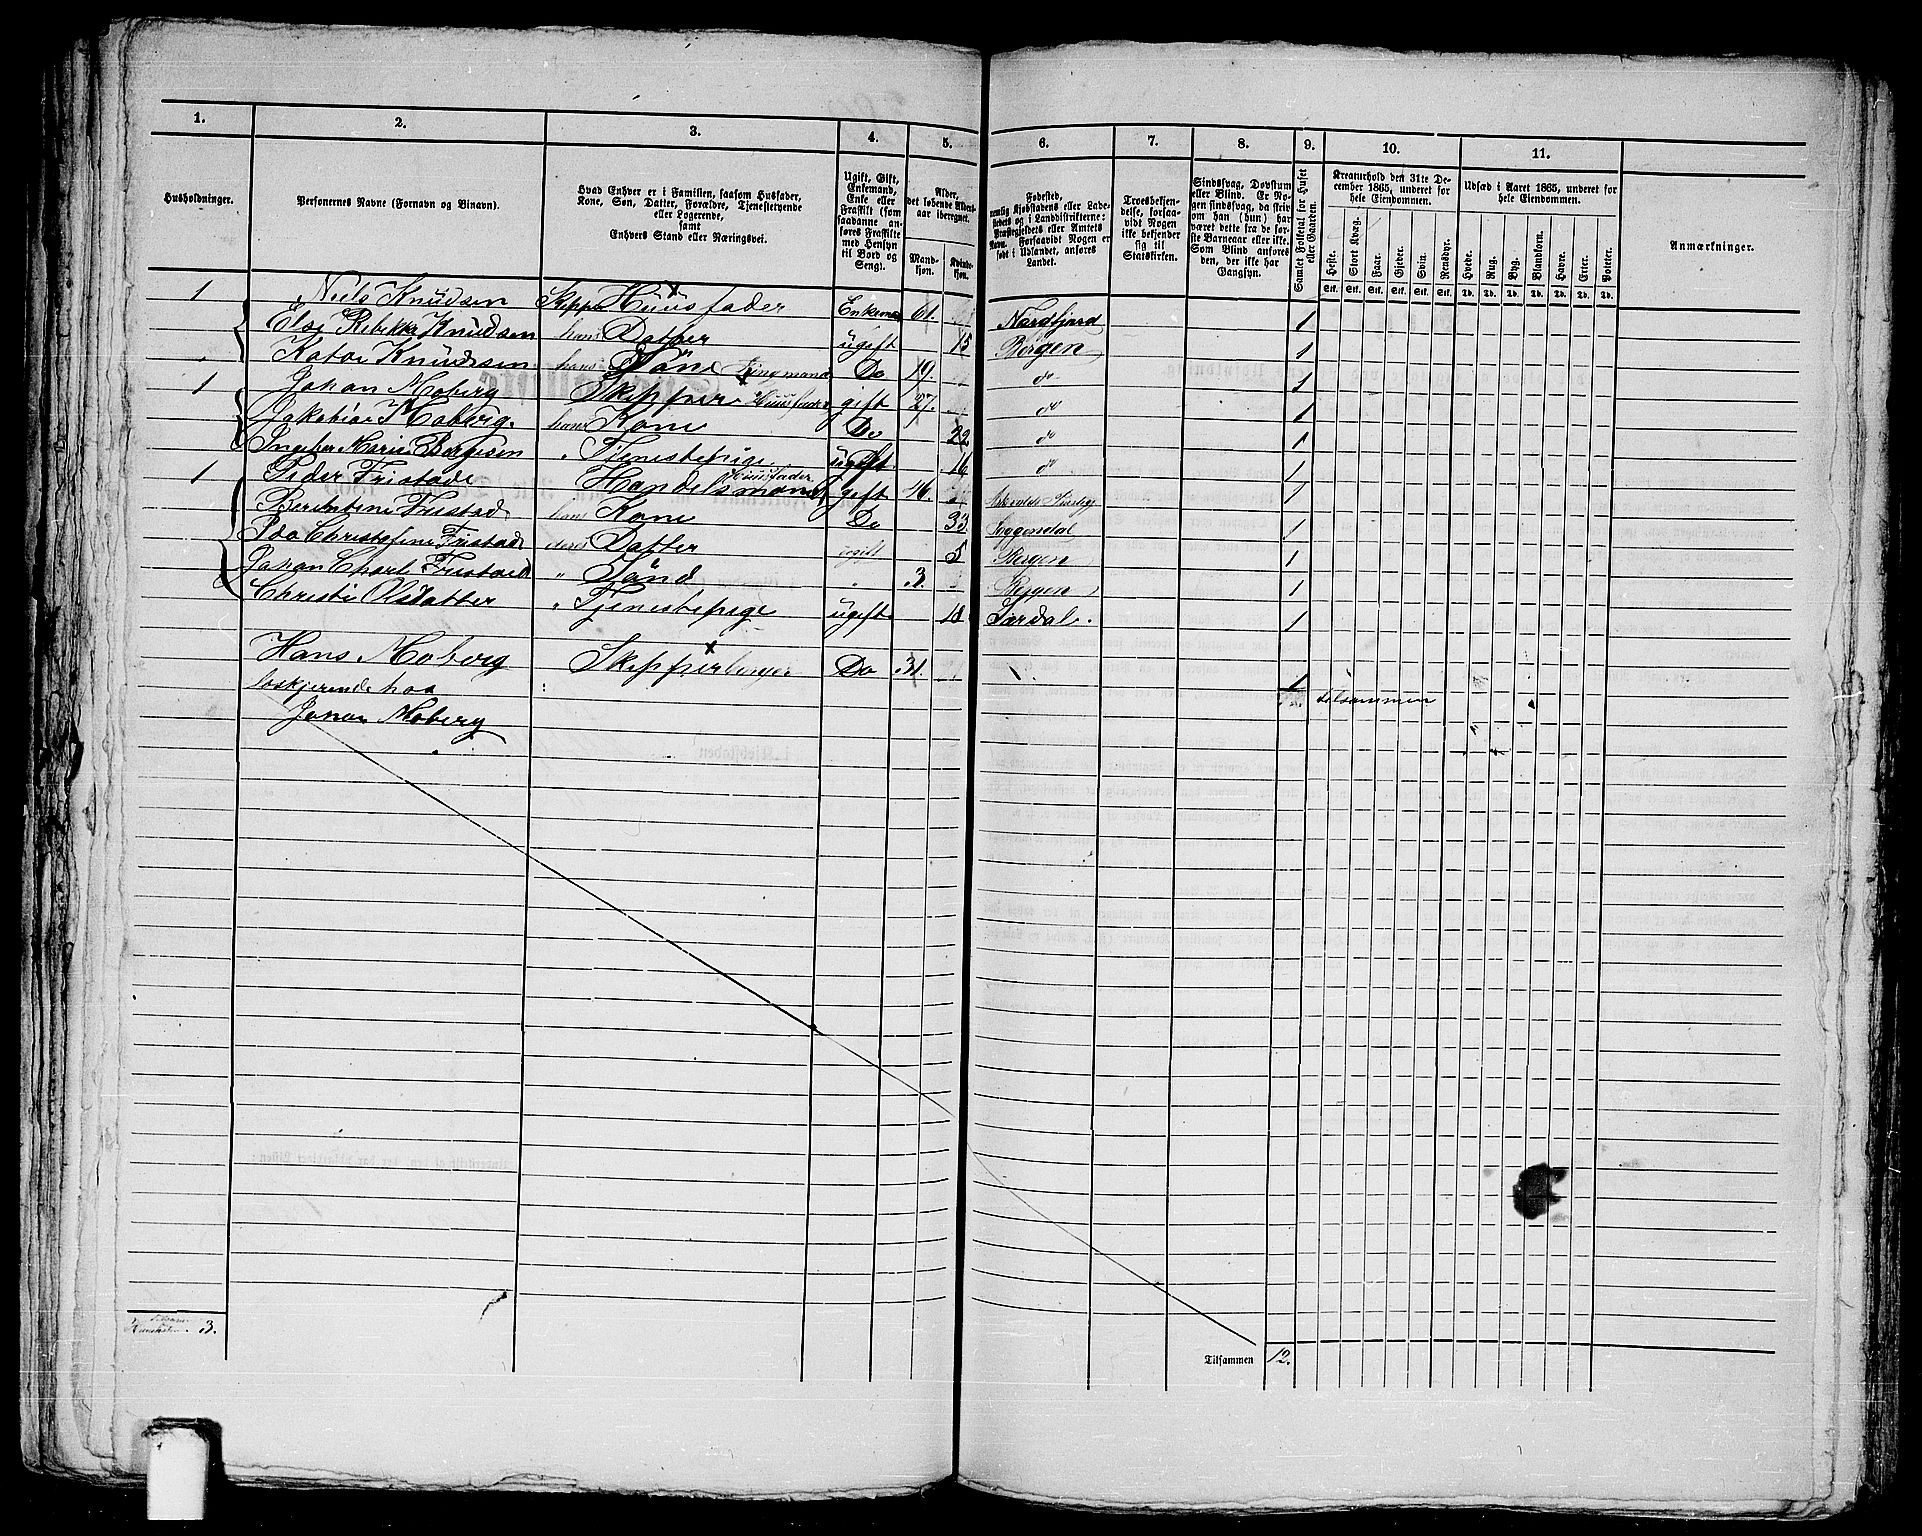 1. 2. 3. 4. 5. 6. 7. 8. 9. 10. 11.
Husholdninger.
Personernes Navne (Fornavn og Binavn).
Hvad Enhver er i Familien, saasom Husfader,
Kone, Søn, Datter, Forældre, Tjenestetyende
eller Logerende,
samt
Enhvers Stand eller Næringsvei.
Ugift, Gift,
Enkemand,
Enke eller
Fraskilt (som
saadanne an-
føres Fraskilte
med Hensyn
til Bord og
Seng).
Alder,
det løbende Alders-
aar iberegnet.
Mand-
kjøn.
Kvinde-
kjøn.
Fødested,
nemlig Kjøbstadens eller Lade-
stedets og i Landdistrikterne:
Præstegjeldets eller Amtets
Navn. Forsaavidt Nogen er
født i Udlandet, anføres
Landet.
Troesbekjen-
delse, forsaa-
vidt Nogen
ikke bekjender
sig til
Statskirken.
Sindssvag, Døvstum
eller Blind. Er No-
gen sindssvag, da skriv
om han (hun) har
været dette fra de før-
ste Barneaar eller ikke.
Som Blind anføres
den, der ikke har
Gangsyn.
Samlet Folketal for Huset
eller Gaarden.
Kreaturhold den 31te De-
cember 1865, underet for
hele Eiendommen.
Heste. Stort Kvæg. Faar. Gjeder. Svin. Rensdyr.
Stk. Stk. Stk. Stk. Stk. Stk.
Udsæd i Aaret 1865, underet for
hele Eiendommen.
Hvede. Rug. Byg. Blandkorn. Havre. Erter. Poteter.
Td. Td. Td. Td. Td. Td. Td.
Anmærkninger.
1 Niels Knudsen Skipper Huusfader Enkemand 61. Nordfjord 1
Else Rebekka Knudsen hans Datter ugift 15 Bergen 1
Knudsen hans Söne Do 19. do 1
1 Johan Moberg Skipper Huusfader gift 27. do 1
Moberg. hans Kone Do 22 do 1
Marie Børgesen " Tienestepige ugift 16 do 1
1 Peder Fristade Handelsmand Huusfader gift 46. 1
Berentine Fristad hans Kone Do 33 Soggendal 1
Ida Christofine Fristade deres Datter ugift 5 Bergen 1
Johan Charl Fristad " Sönd " 3. Bergen 1
Christi Olsdatter " Tjenestepige ugift 18 1
Hans Moberg Skipperborger Do 31. 1
loskjerende hos tilsammen
Johan Moberg
3.
Tilsammen 12.